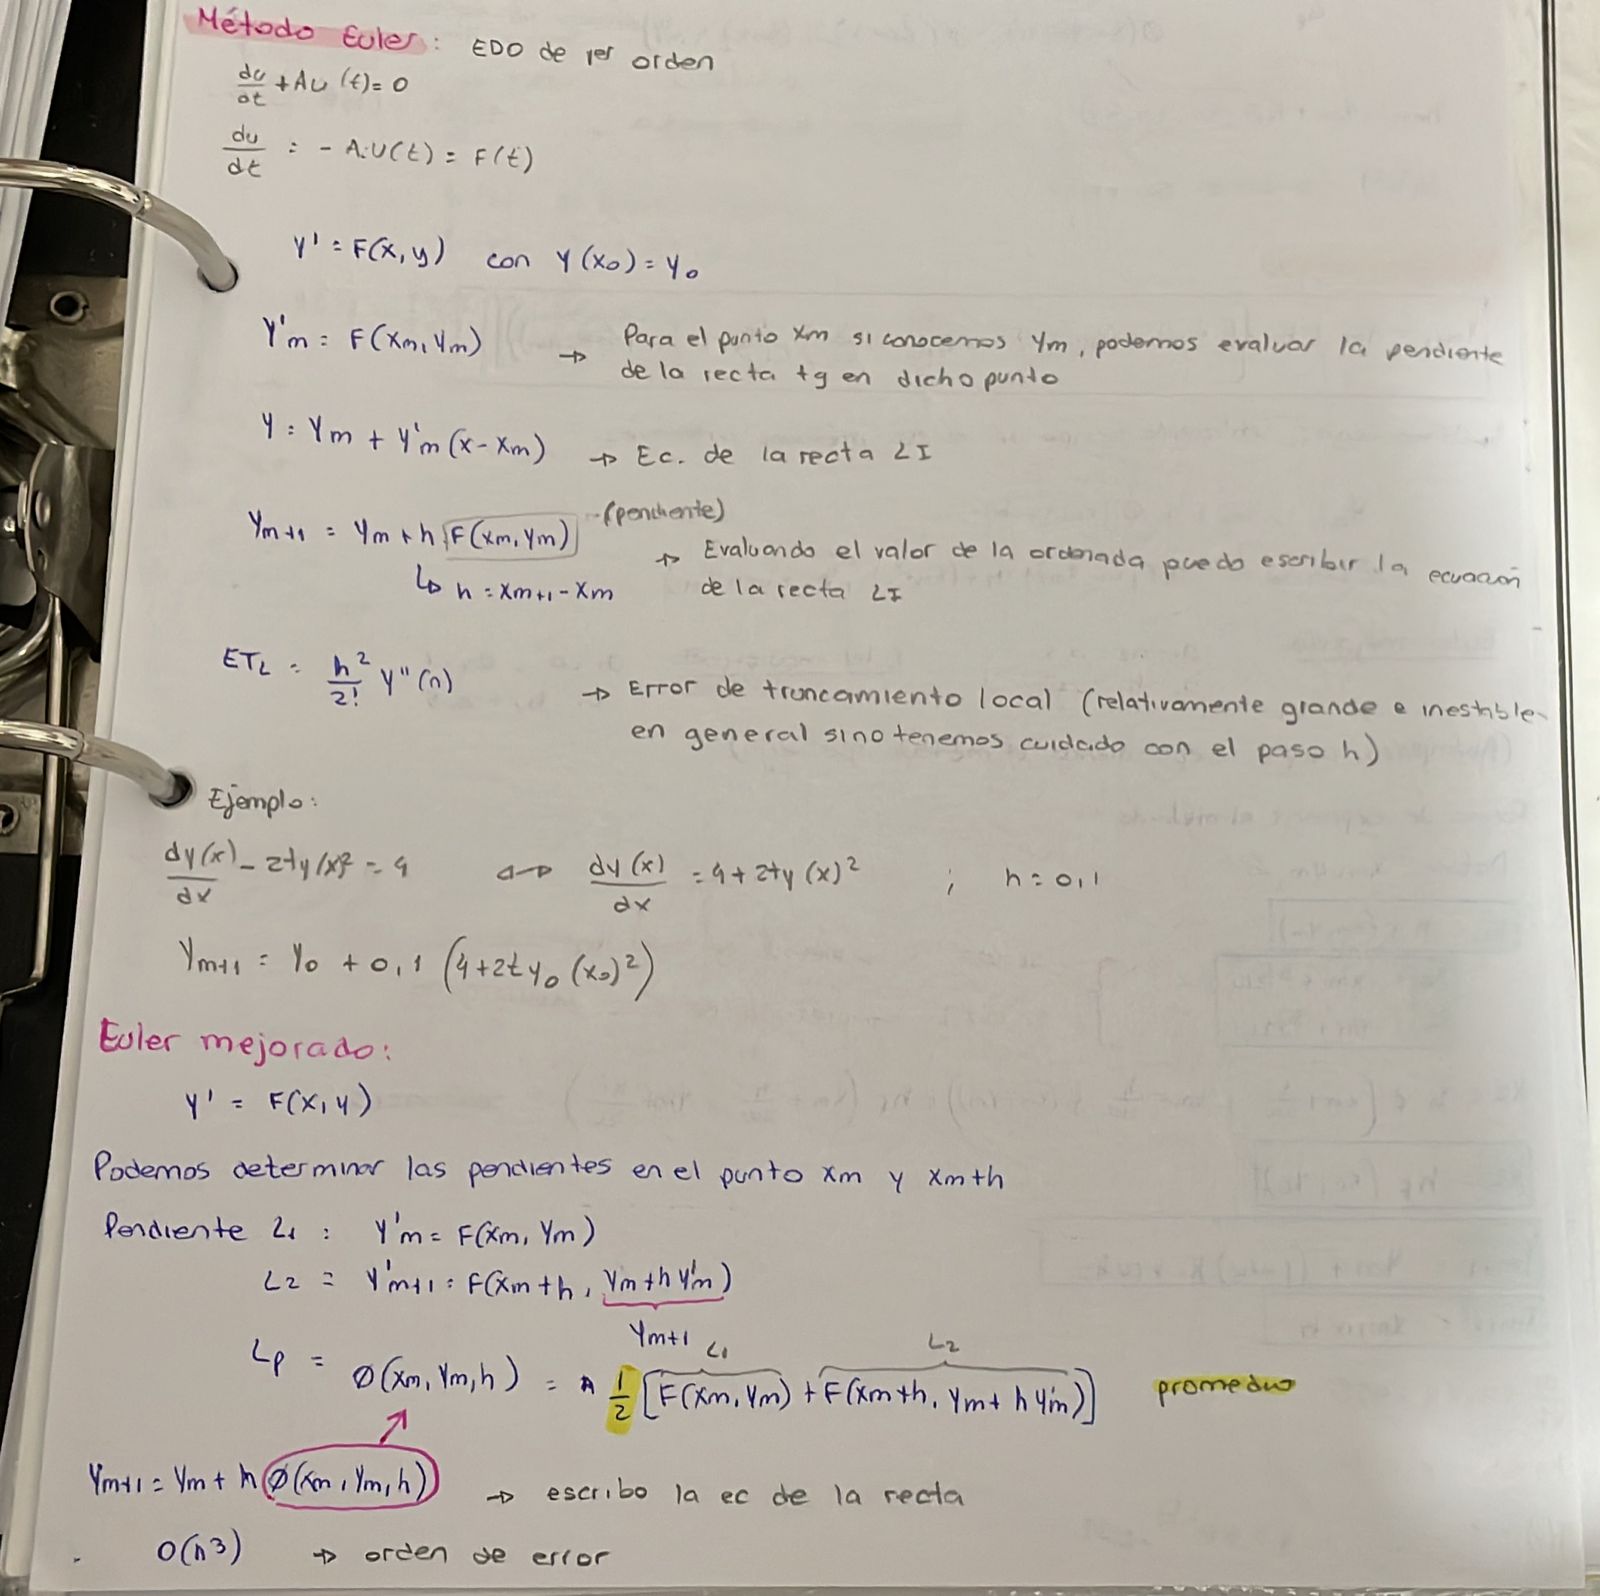 Método Euler: EDO de 1er orden
du/dt + AU(t) = 0
du/dt = - A.U(t) = F(t)
Y' = F(x,y) con Y(x0) = Y0
Y'm = F(xm,Ym) → Para el punto xm si conocemos Ym, podemos evaluar la pendiente
de la recta tg en dicho punto
Y = Ym + Y'm (x - xm) → Ec. de la recta LI
Ym+1 = Ym + h F(xm,Ym) (pendiente)
→ Evaluando el valor de la ordenada puedo escribir la ecuación
↳ h = xm+1 - xm de la recta LI
ETL = h²/2! Y''(n) → Error de truncamiento local (relativamente grande e inestable
en general sino tenemos cuidado con el paso h)
Ejemplo:
dy(x)/dx - 2ty(x)² = 4 ↔ dy(x)/dx = 4 + 2ty(x)² ; h = 0,1
Ym+1 = Y0 + 0,1 (4 + 2t y0 (x0)²)
Euler mejorado:
Y' = F(x,y)
Podemos determinar las pendientes en el punto xm y xm+h
Pendiente L1 : Y'm = F(xm, Ym)
L2 = Y'm+1 = F(xm+h, Ym+hY'm)
Ym+1 L1 L2
Lp = Ø(xm,Ym,h) = 1/2 [F(xm,Ym) + F(xm+h, Ym+hY'm)] promedio
Ym+1 = Ym + h Ø(xm,Ym,h) → escribo la ec de la recta
O(h³) → orden de error